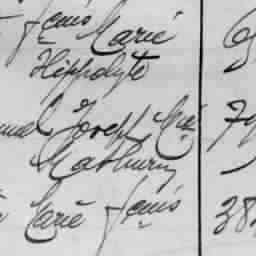 Louis Marie 6
Hippolyte
Joseph Mie 7
Mathurin
Marie Louis 38